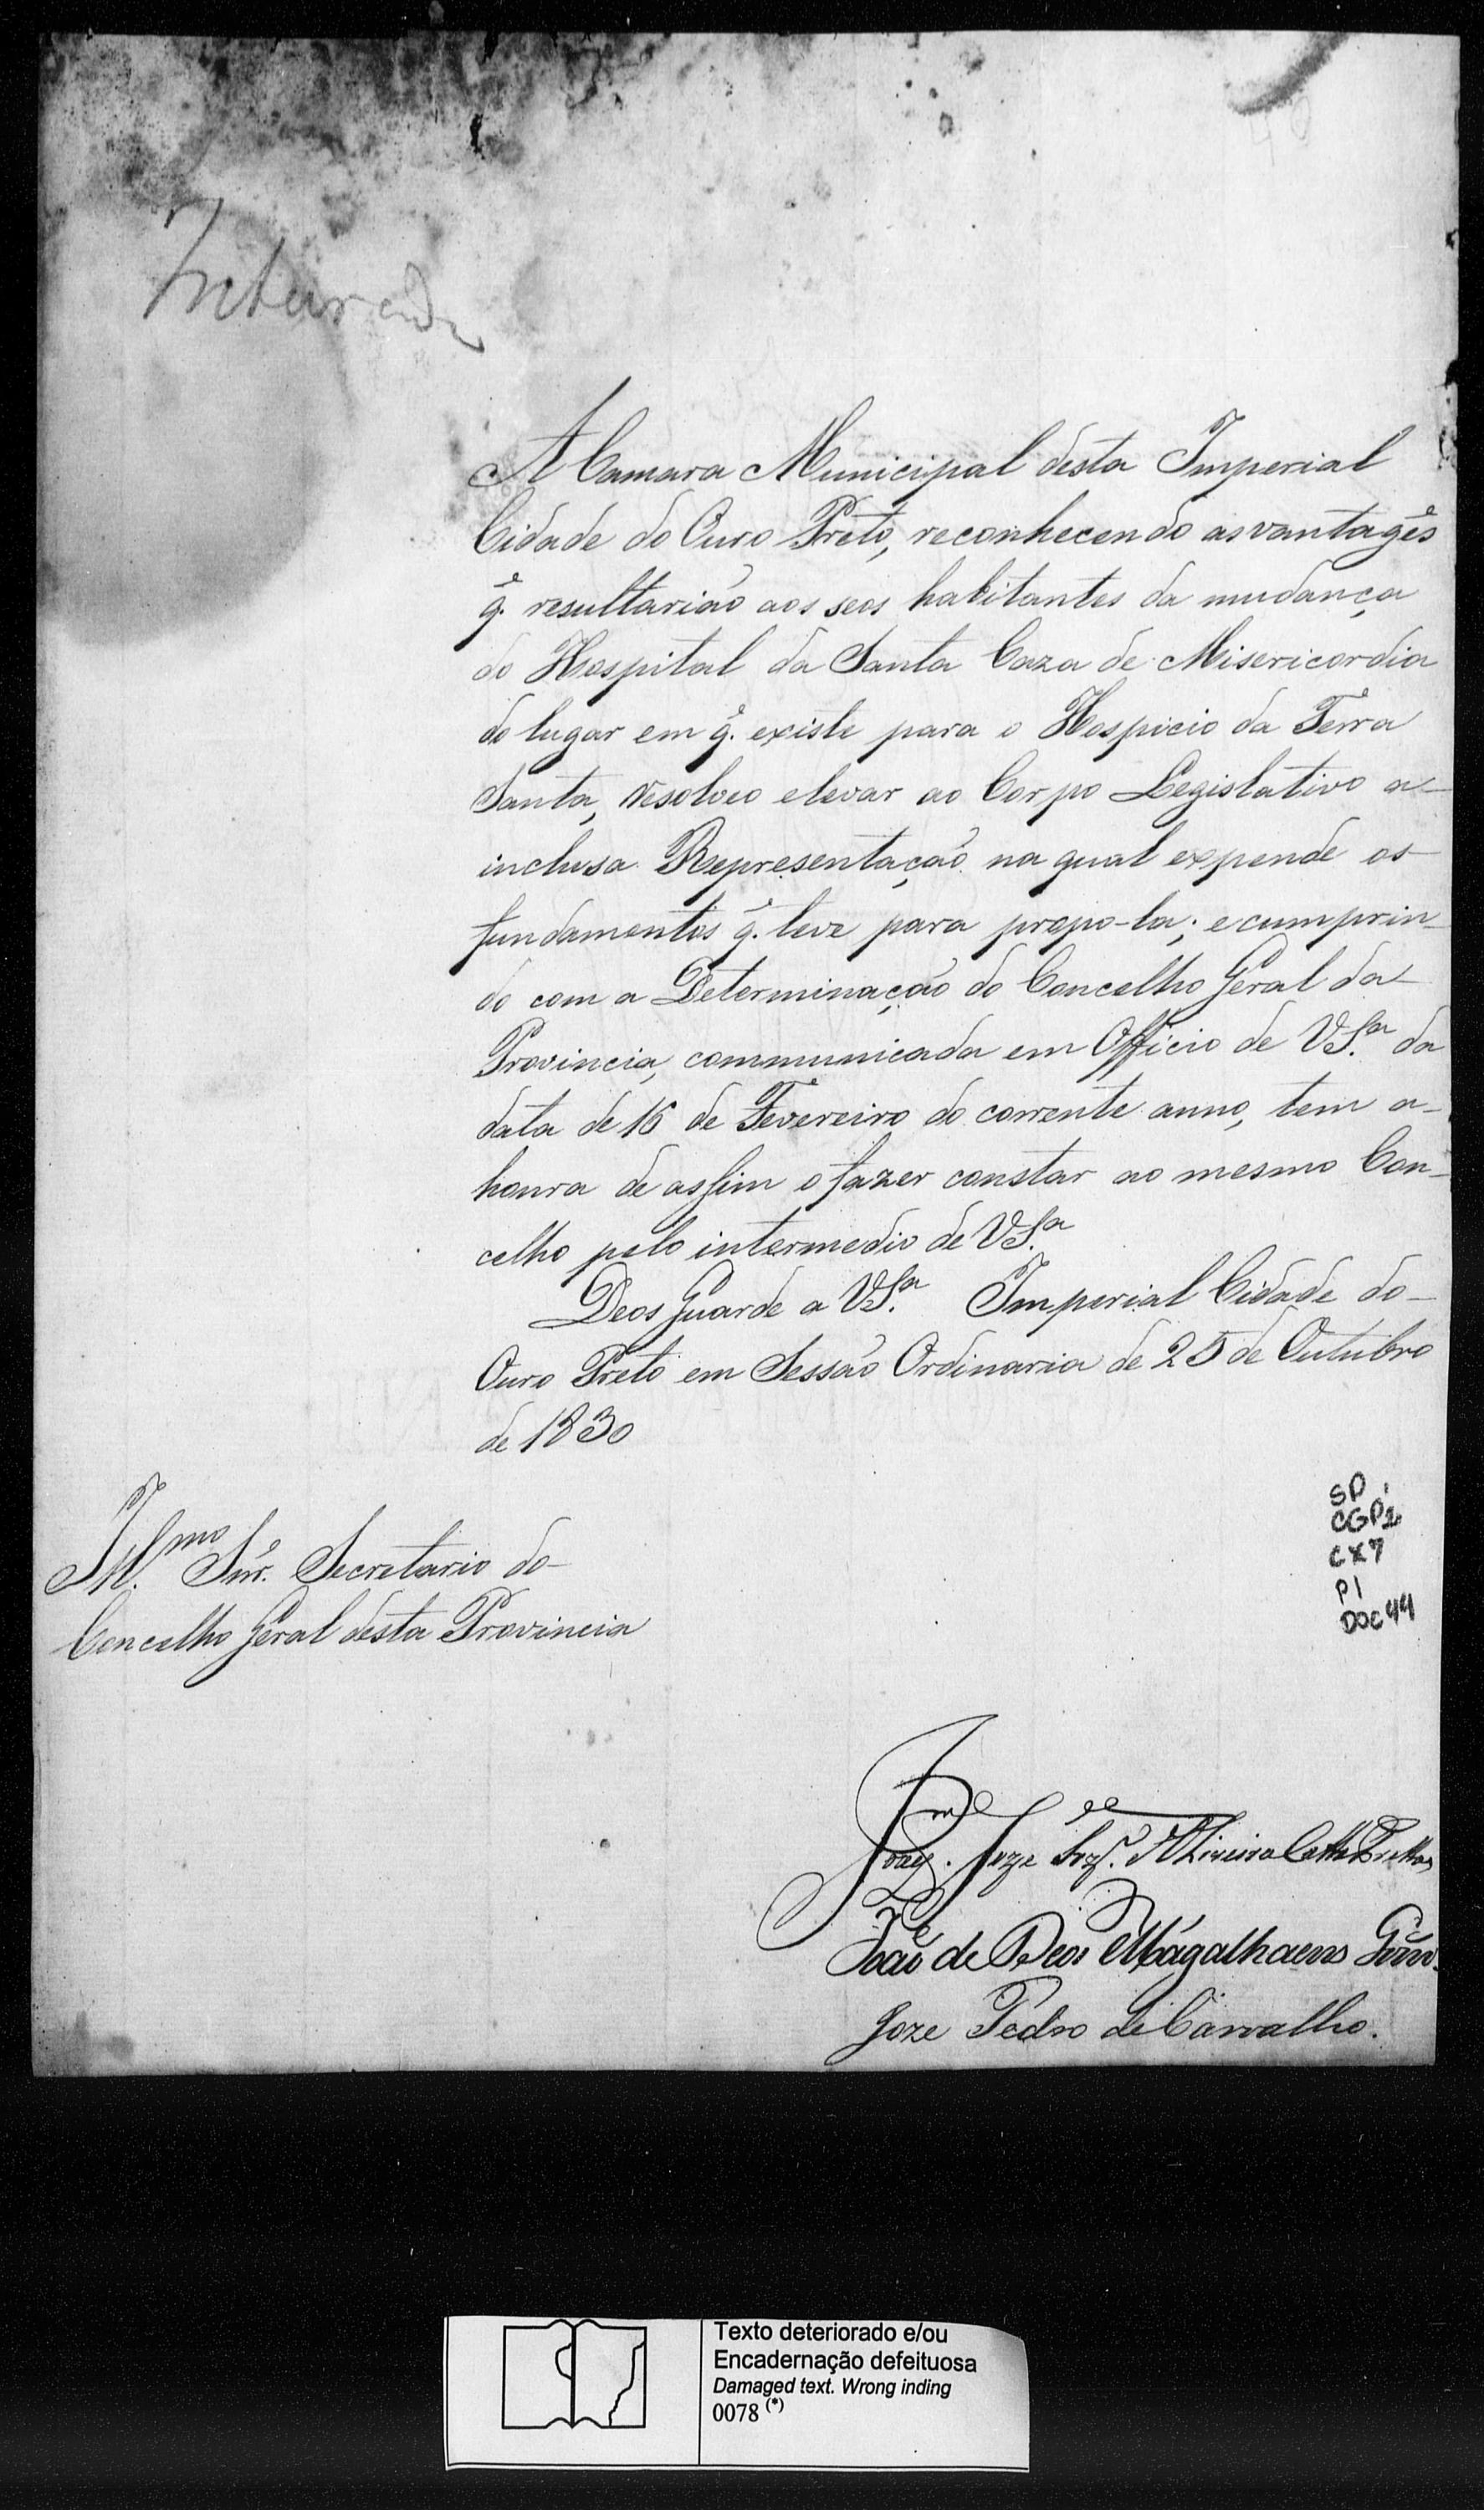 Inteirado
A Camara Municipal desta Imperial
Cidade do Ouro Preto, reconhecendo as vantagẽs
q̃. resultarião aos seos habitantes da mudança
do Hospital da Santa Caza de Misericordia
do lugar em q̃. existe para o Hospicio da Terra
Santa, resolveo elevar ao Corpo Legislativo a
inclusa Representação na qual expende os
fundamentos q̃. teve para propo-la; e cumprin-
do com a Determinação do Concelho Geral da
Provincia, communicada em Officio de VS.ª da
data de 16 de Fevereiro do corrente anno, tem a
honra de assim o fazer constar ao mesmo Con-
celho pelo intermedio de VS.ª
Deos Guarde a VS.ª Imperial Cidade do
Ouro Preto em Sessão Ordinaria de 25 de Outubro
de 1830
Ill.mo Snr. Secretario do
Concelho Geral desta Provincia
SP
CGP1
CX7
P1
DOC44
Joze
João de Deos Magalhaens
Joze Pedro de Carvalho.
Texto deteriorado e/ou
Encadernação defeituosa
Damaged text. Wrong inding
0078 (*)